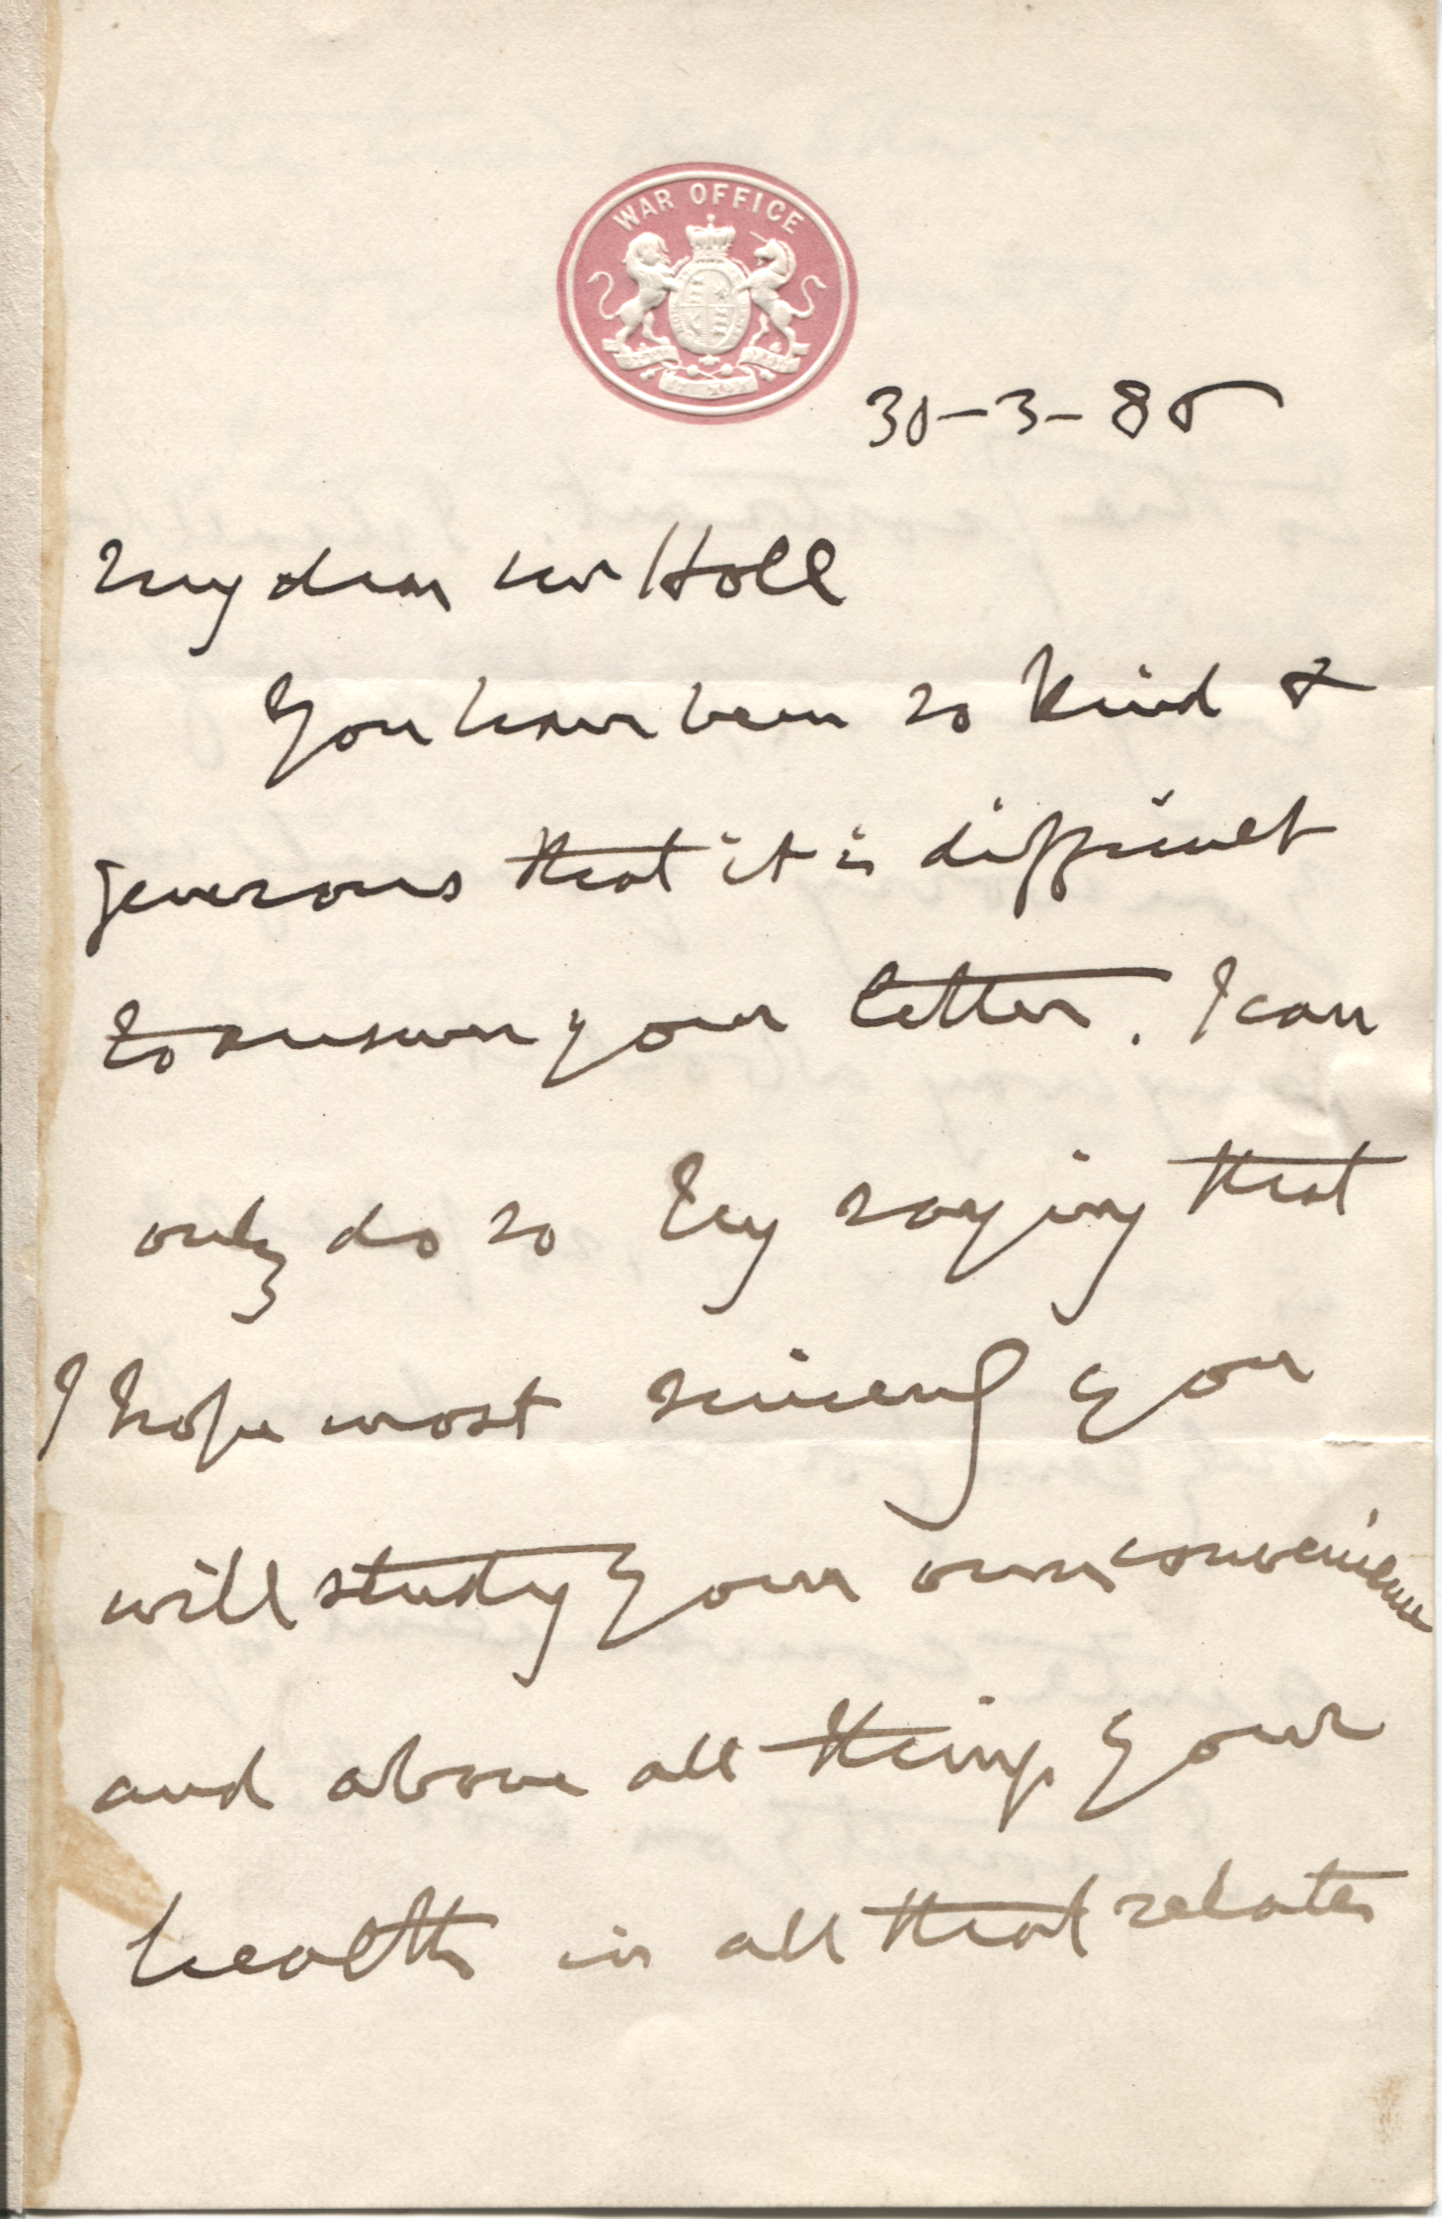 WAR OFFICE
30-3-85
My dear Mr Holl
You have been so kind &
generous that it is difficult
to answer your letter. I can
only do so by saying that
I hope most sincerely you
will study your own convenience
and above all things your
health in all that relates